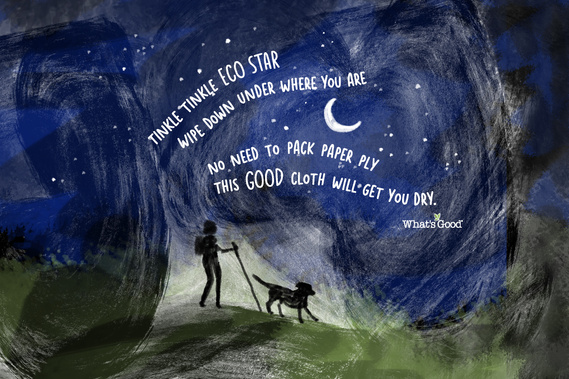 TINKLE TINKLE ECO STAR
WIPE DOWN UNDER WHERE YOU ARE
NO NEED TO PACK PAPER PLY
THIS GOOD CLOTH WILL GET YOU DRY.
What's Good